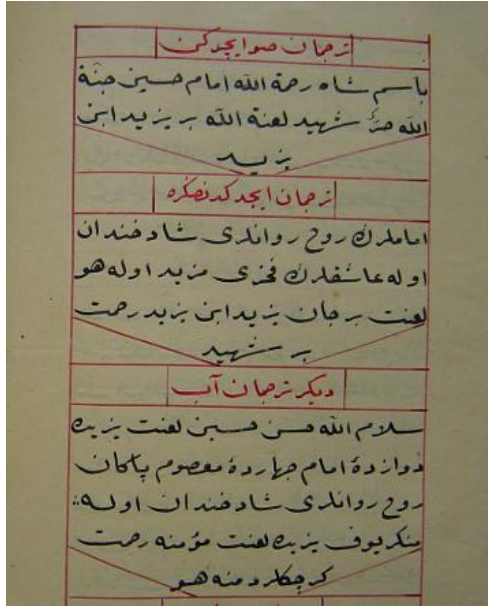 ترجمان صو ایچدکن
باسم شاه رحمة الله امام حسین جنة
الله شهید لعنة الله بر یزید ابن
یزید
ترجمان ایچدکدنصکره
اماملرك روح روانلری شاد خندان
اوله عاشقلرك فخری مزید اوله هو
لعنت بر جان یزید ابن یزید رحمت
بر شهید
دیکر ترجمان آب
سلام الله حسن حسین لعنت یزیده
دوازدۀ امام چهاردۀ معصوم پاکان
روح روانلری شاد خندان اوله
منکر یوف یزیده لعنت مؤمنه رحمت
کرچکلر دمنه هو